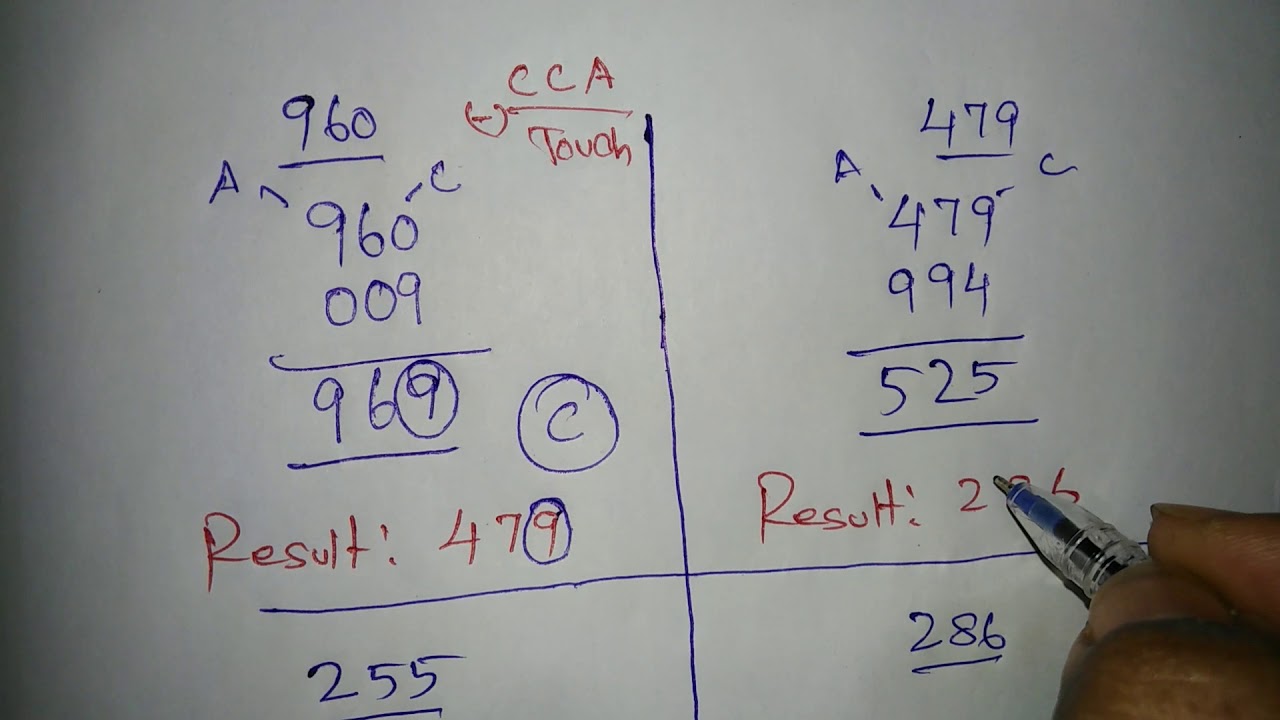 CCA
(-) Touch
960
A C
960
009
969 C
Result: 479
255
479
A C
479
994
525
Result: 2 6
286